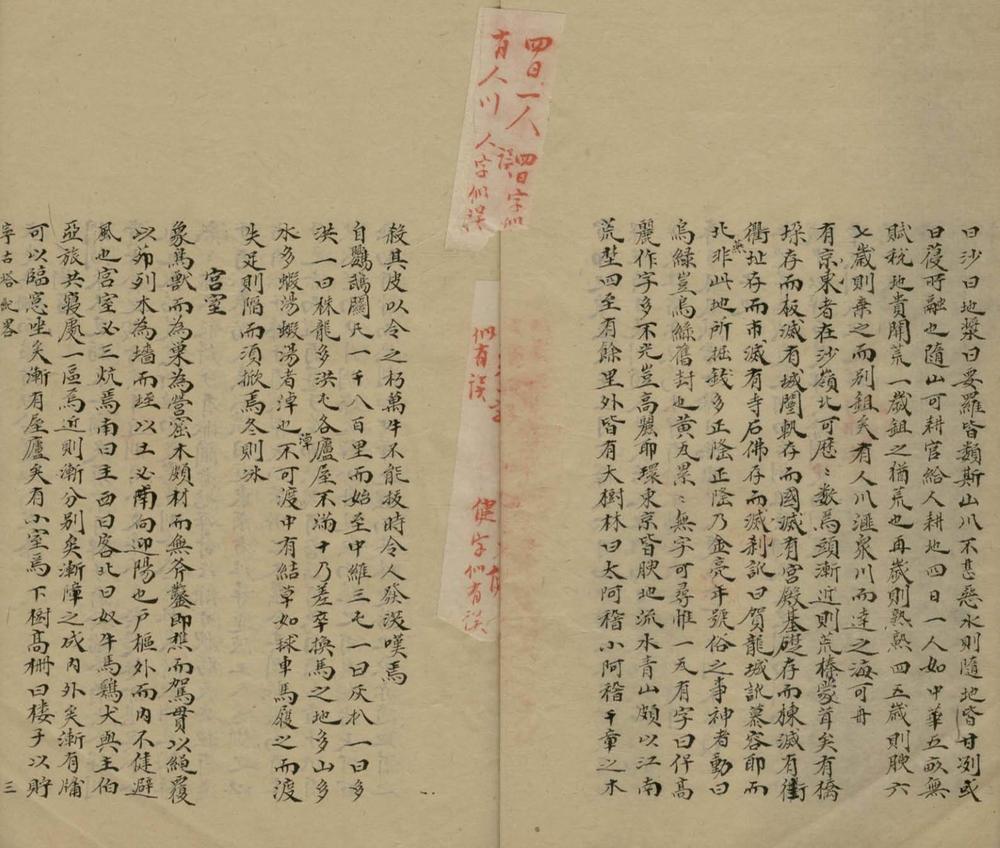 曰沙曰地漿曰妥羅皆類斯山川不甚惡水則隨地皆甘冽或
曰葠時融也隨山可耕官給人耕地四日一人如中華五畝無
賦稅地貴開荒一歲鉏之猶荒也再歲則熟熟四五歲則腴六
七歲則棄之而別鉏矣有人川滙泉川而達之海可舟
有京東者在沙嶺北可歷歷數焉頭漸近則荒榛蒙茸矣有橋
垛存而板滅有城闉軌存而國滅有宮殿基礎存而棟滅有街
衢址存而市滅有寺石佛存而滅剎訛曰賀龍城訛慕容卽而
燕
北非此地所掘錢多正隆正隆乃金亮年號俗之事神者動曰
烏綠豈烏綠舊封也黃瓦累累無字可尋惟一瓦有字曰保高
麗作字多不完豈高麗卽環東京皆腴地流水青山頗以江南
荒埜四至有餘里外皆有大樹林曰太阿稽小阿稽千章之木
四日一人 四日字似誤
有人川 人字似誤
似有誤
健字似有誤
殺其皮以令之朽萬牛不能扳時令人發浚嘆焉
自鸚鵡關凡一千八百里而始至中維三屯一曰灰扒一曰多
洪一曰株龍多洪屯各廬屋不滿十乃差卒換馬之地多山多
水多蝦湯蝦湯者淖也不可渡中有結草如球車馬履之而渡
潭
失足則陷而須掀焉冬則冰
宮室
象鳥獸而為巢為營窟木頗材而無斧鑿卽樵而駕貫以繩覆
以茆列木為墻而堊以土必南向迎陽也戶樞外而內不健避
風也宮室必三炕焉南曰主西曰客北曰奴牛馬鷄犬與主伯
亞旅共寢處一區焉近則漸分別矣漸障之成內外矣漸有牖
可以臨窓坐矣漸有屋廬矣有小室焉下樹高柵曰樓子以貯
寧古塔紀畧
三